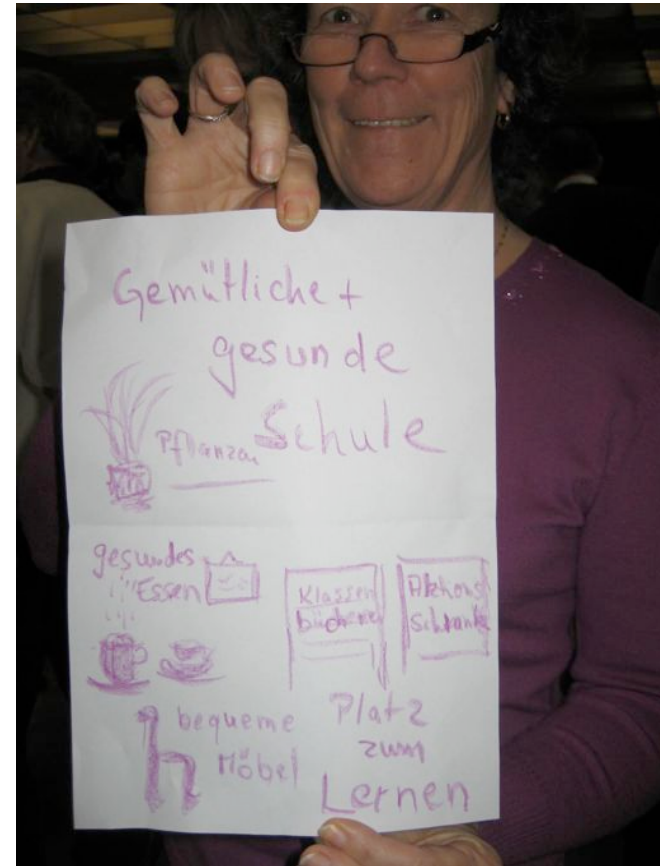 Gemütliche +
gesunde
Schule
Pflanzen
gesundes
Essen
Klassen
bücherei
Aktions
Schrank
bequeme
Möbel
Platz
zum
Lernen